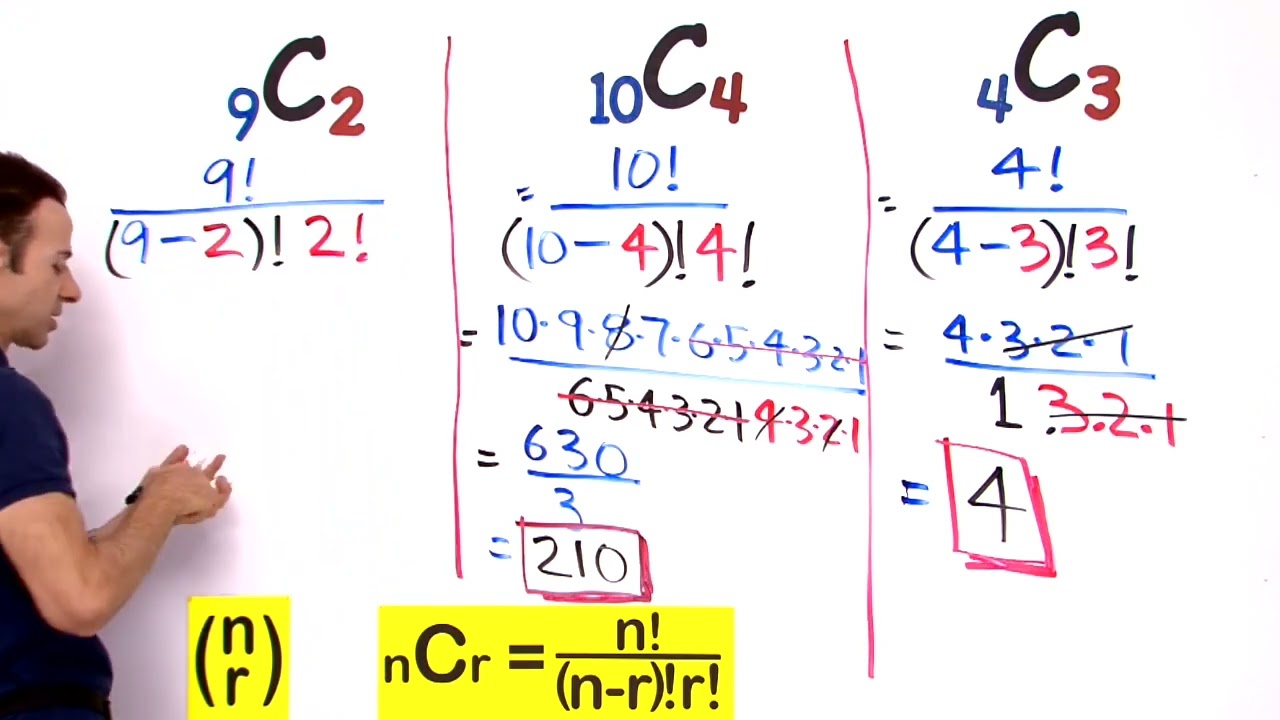 ₉C₂
9!
(9-2)! 2!
₁₀C₄
= 10!
(10-4)!4!
= 10·9·8·7·6·5·4·3·2·1
6·5·4·3·2·1 4·3·2·1
= 630
3
= 210
₄C₃
= 4!
(4-3)!3!
= 4·3·2·1
1·3·2·1
= 4
(n
r)
nCr = n!
(n-r)!r!